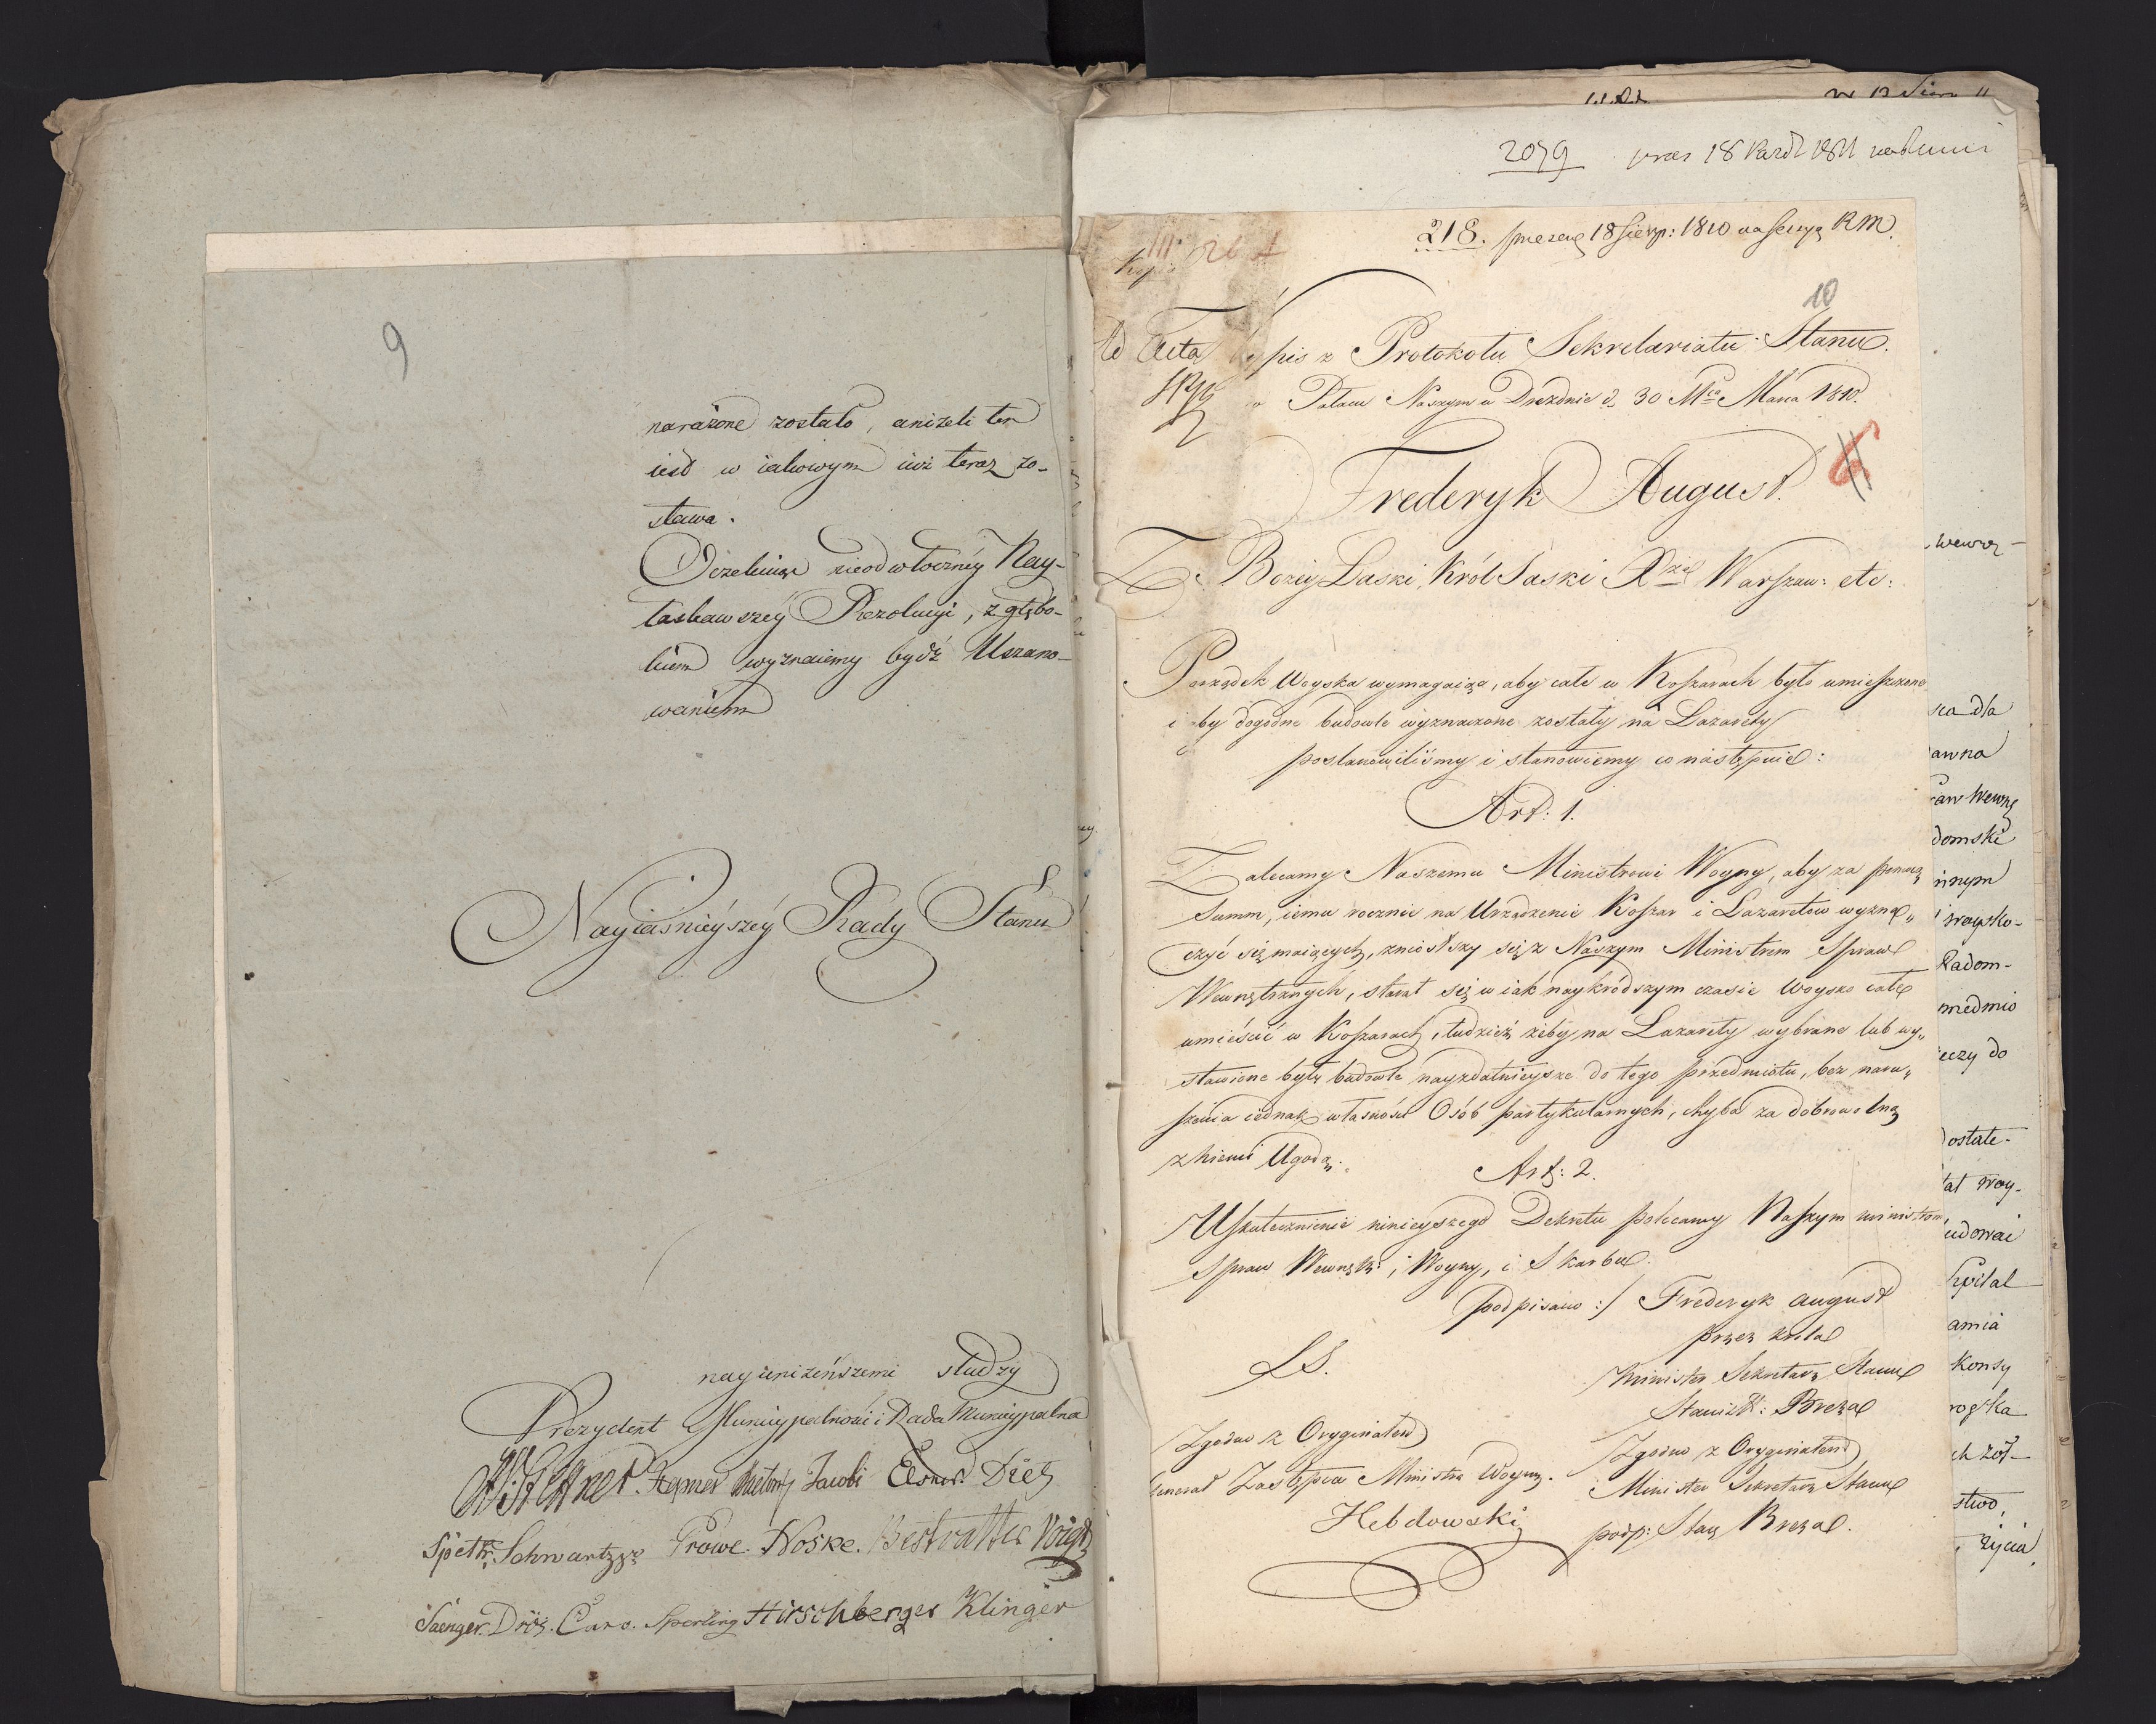 9
narażone zostało, aniżeli ten
iest w iakowym iuż teraz zo-
stawa.
Oczekuiąc nieodwłoczney Nay-
łaskawszey Rezolucyi, z głębo-
kiem wyznaiemy bydź Uszano-
waniem
Nayiaśnieyszey Rady Stanu
nayuniżeńszemi słudzy
Prezydent Municypalności i Rada Municypalna
Jacobi Elsner Dietz
Schwartz Prowe. Noske. Voigt
Saenger. Caro. Sperling Hirschberger Klinger
2079
218. 18 Sierp: 1810 na Sessyą RM.
10
Ad Acta
Wypis z Protokołu Sekretariatu Stanu.
w Pałacu Naszym w Dreznie d. 30 Mca Marca 1810.
Frederyk August.
Z Bożey Łaski Król Saski Xże Warszaw: etc:
Porządek Woyska wymagaiąc, aby całe w Koszarach było umieszczone
i by dogodne budowle wyznaczone zostały na Lazarety
postanowiliśmy i stanowiemy co następuie:
Art: 1.
Zalecamy Naszemu Ministrowi Woyny, aby za pomocą
Summ, iemu rocznie na Urządzenie Koszar i Lazaretów wyzna„
czyć się maiących, zniosłszy się z Naszym Ministrem Spraw
Wewnętrznych, starał się w iak naykrótszym czasie Woysko całe
umieścić w Koszarach, tudzież żeby na Lazarety wybrane lub wy„
stawione były budowle nayzdatnieysze do tego przedmiotu, bez naru„
szenia iednak własności Osób partykularnych, chyba za dobrowolną
z niemi Ugodą.
Art: 2.
Uskutecznienie ninieyszego Dekretu polecamy Naszym ministrom
Spraw Wewnętr:, Woyny, i Skarbu.
podpisano :/ Frederyk August
przez Króla
LS.
Minister Sekretarz Stanu
Stanisł: Breza
Zgodno z Oryginałem
Zgodno z Oryginałem
Generał Zastępca Ministra Woyny.
Minister Sekretarz Stanu
Hebdowski
podp: Stan Breza.